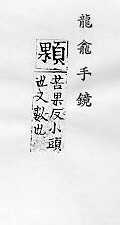 龍龕手鏡
顆
苦果反小頭
也又數也